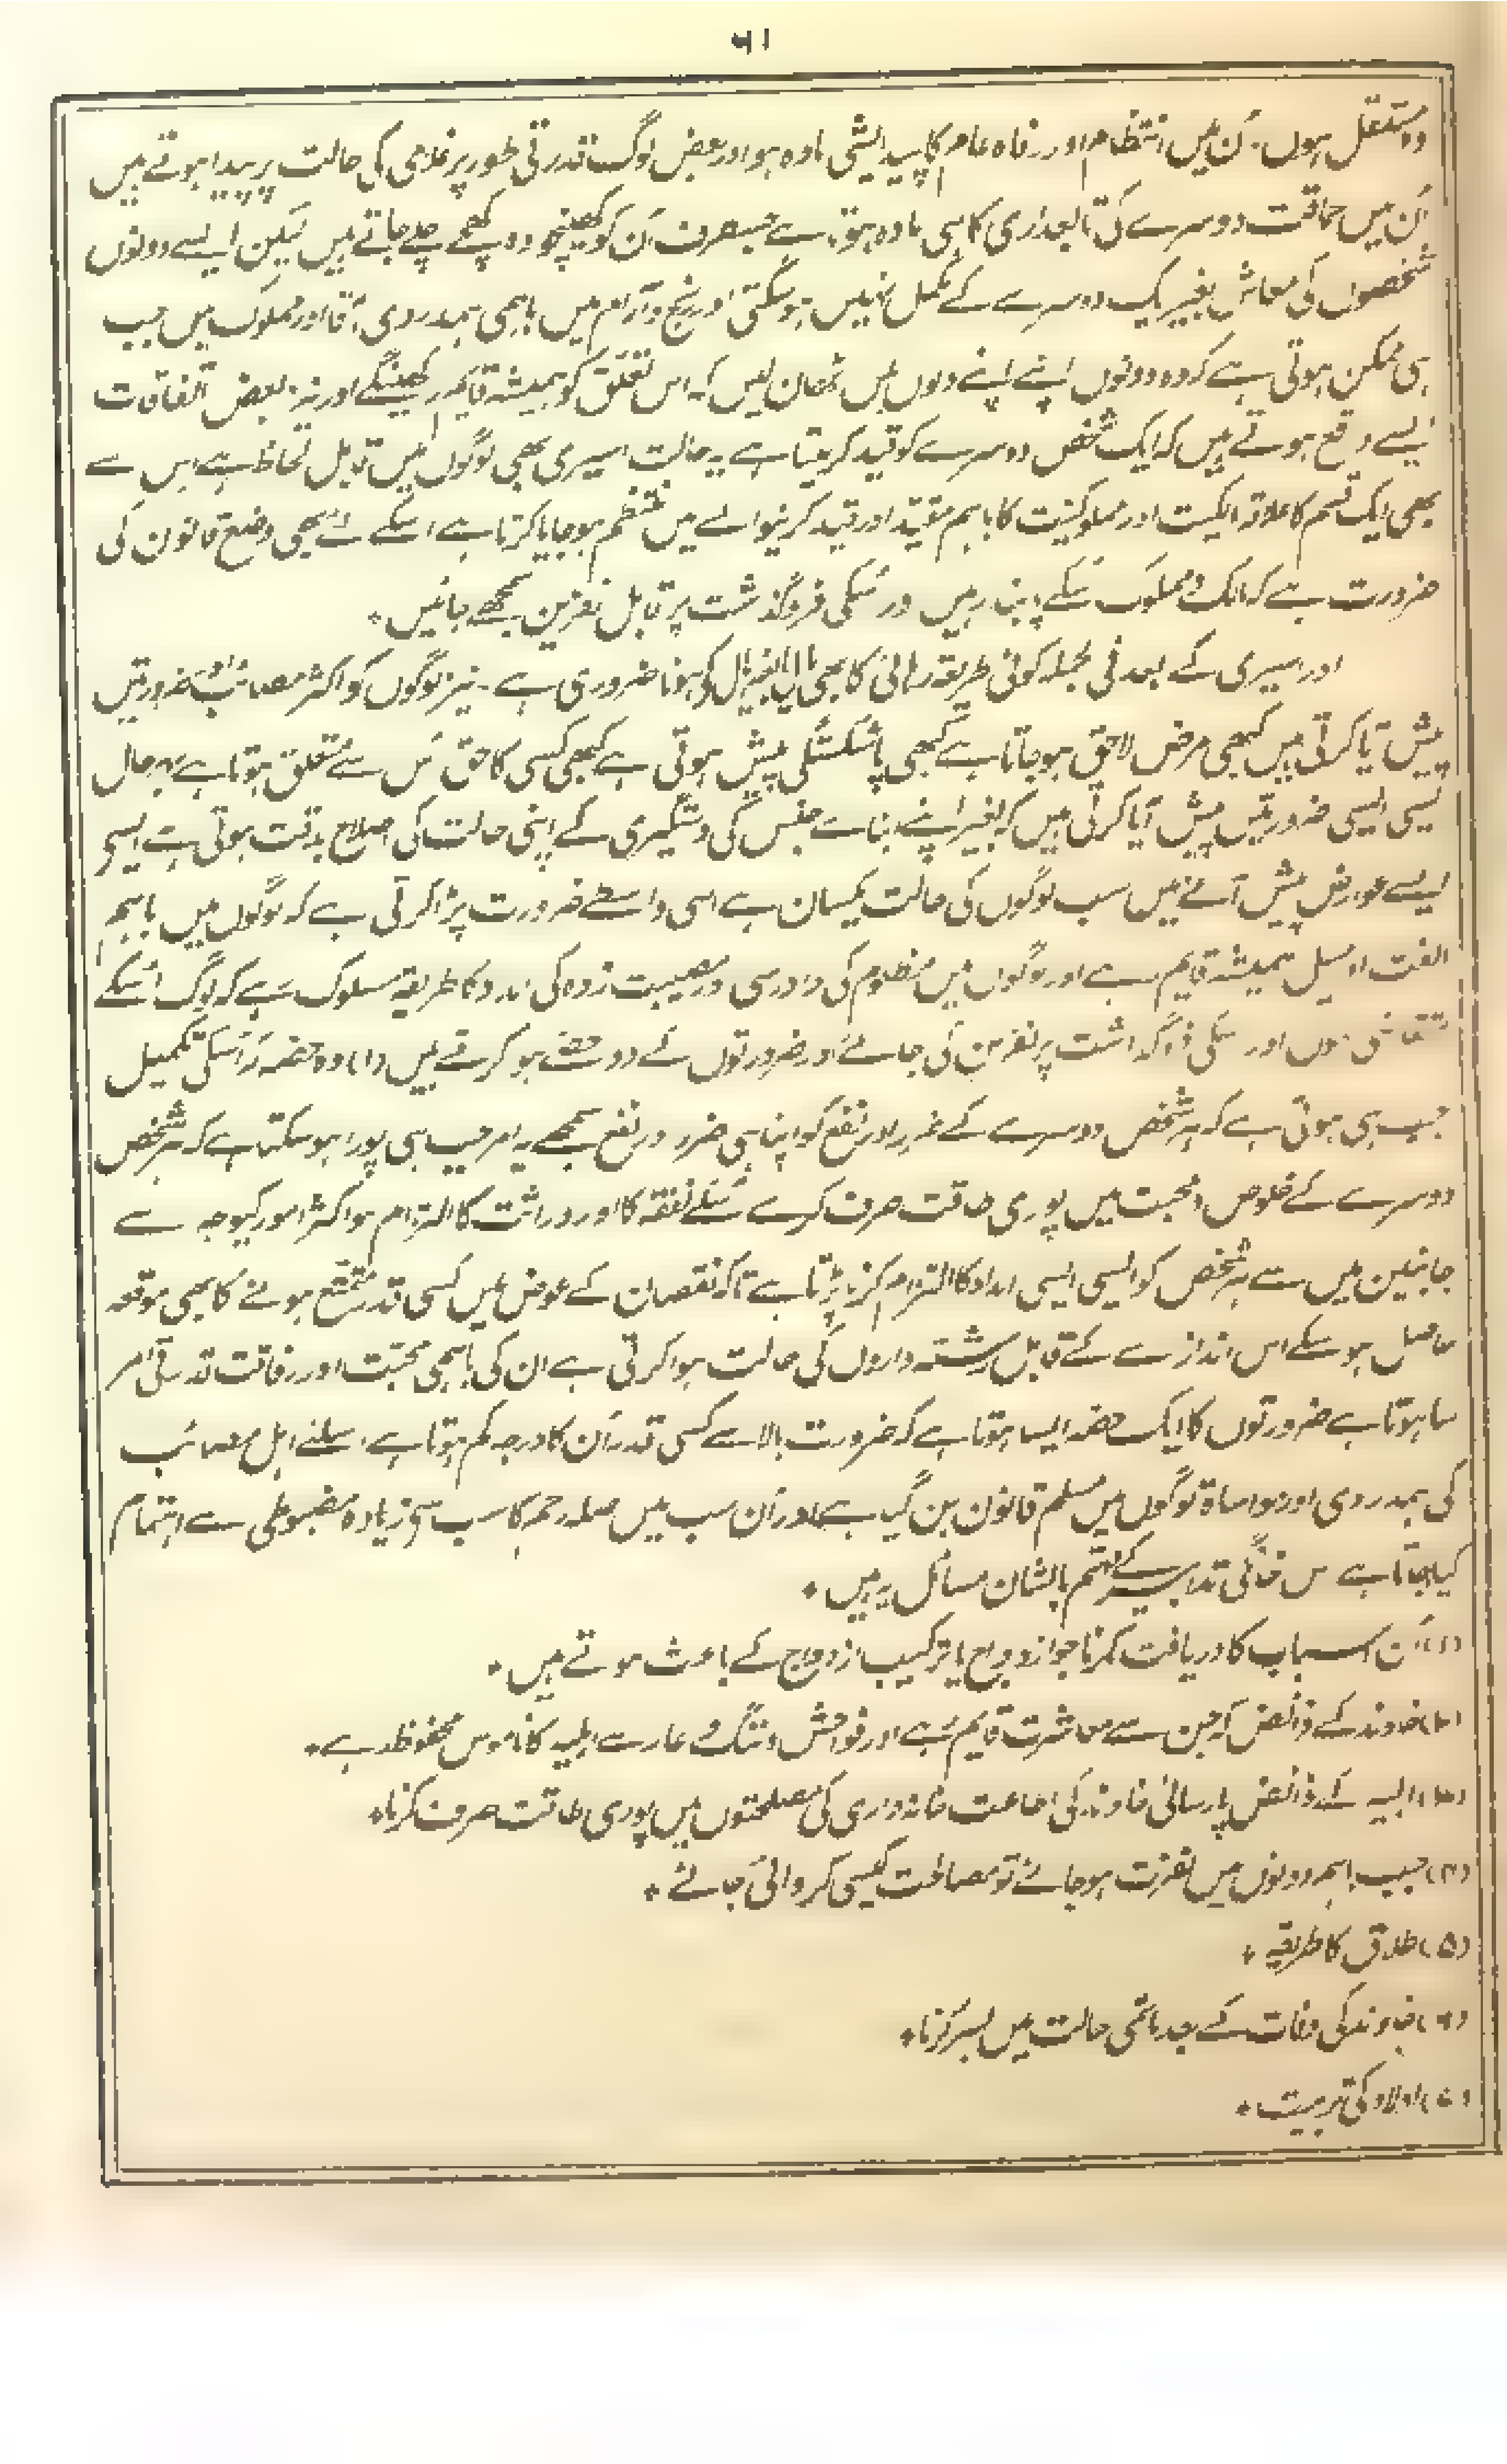 ۶۱
وہ مستقل ہوں۔ اُن میں انتظام اور رفاہ عام کا پیدایشی مادہ ہو اور بعض لوگ قدرتی طور پر غلامی کی حالت پر پیدا ہوتے ہیں
اُن میں حماقت دوسرے کی تابعداری کا ہی مادہ ہوتا ہے جس طرف اُن کو کھینچو وہ کھچے چلے جاتے ہیں لیکن ایسے دونوں
شخصوں کی معاش بغیر یک دوسرے کے مکمل نہیں ہو سکتی اور رنج و آرام میں باہمی ہمدردی آقا اور مملوک میں جب
ہی ممکن ہوتی ہے کہ وہ دونوں اپنے اپنے دلوں میں ٹھان لیں کہ اس تعلق کو ہمیشہ قایم رکھینگے اور نیز بعض اتفاقات
ایسے واقع ہوتے ہیں کہ ایک شخص دوسرے کو قید کر لیتا ہے یہ حالت اسیری بھی لوگوں میں قابل لحاظ ہے اس سے
بھی ایک قسم کا علاقہ مالکیت اور مملوکیت کا باہم مقید اور قید کرنیوالے میں منتظم ہو جایا کرتا ہے اسکے لئے بھی وضع قانون کی
ضرورت ہے کہ مالک و مملوک اُسکے پابند رہیں اور اُسکی فروگذاشت پر قابل نفرین سمجھے جائیں *
اور اسیری کے بعد فی الجملہ کوئی طریقہ رہائی کا بھی ہونا ضروری ہے۔ نیز لوگوں کو اکثر مصائب اور ضرورتیں
پیش آیا کرتی ہیں کبھی مرض لاحق ہو جاتا ہے کبھی پاشکستگی پیش ہوتی ہے کبھی کسی کا حق اُس سے متعلق ہوتا ہے بہرحال
ایسی ایسی ضرورتیں پیش آیا کرتی ہیں کہ بغیر اپنے ابنائے جنس کی دستگیری کے اپنی حالت کی اصلاح بدقت ہوتی ہے ایسی
ایسے عوارض پیش آنے میں سب لوگوں کی حالت یکساں ہے اسی واسطے ضرورت پڑا کرتی ہے کہ لوگوں میں باہم
الفت اور میل ہمیشہ قایم رہے اور لوگوں میں مظلوم کی دادرسی اور مصیبت زدہ کی مدد کا طریقہ مسلوک رہے کہ لوگ اُسکے
متقاضی ہوں اور اُسکی فروگذاشت پر نفرین کی جائے اور ضرورتوں کے دو حصّے ہوا کرتے ہیں (۱) وہ حصّہ کہ اُسکی تکمیل
جب ہی ہوتی ہے کہ ہر شخص دوسرے کے ضرر اور نفع کو اپنا ہی ضرر اور نفع سمجھے یہ امر جب ہی پورا ہو سکتا ہے کہ ہر شخص
دوسرے کے خلوص و محبت میں پوری طاقت صرف کرے اُسکے نفقہ کا اور وراثت کا التزام ہو اکثر امور کیوجہ سے
جانبین میں سے ہر شخص کو ایسی ایسی امداد کا التزام کرنا پڑتا ہے تاکہ نقصان کے عوض میں کسی قدر متمتع ہونے کا بھی موقعہ
حاصل ہو سکے اس اندازے کے قابل رشتہ داروں کی حالت ہوا کرتی ہے ان کی باہمی محبت اور رفاقت قدرتی امر
سا ہوتا ہے ضرورتوں کا ایک حصہ ایسا ہوتا ہے کہ ضرورت بالا سے کسی قدر اُن کا درجہ کم ہوتا ہے اسلئے اہل مصائب
کی ہمدردی اور مواساۃ لوگوں میں مسلم قانون بن گیا ہے اور اُن سب میں صلہ رحم کا سب سے زیادہ مضبوطی سے اہتمام
کیا جاتا ہے اس خانگی تدابیر کے مہتم بالشان مسائل یہ ہیں *
(۱) اُن اسباب کا دریافت کرنا جو ازدواج یا ترکیب ازدواج کے باعث ہوتے ہیں *
(۲) خاوند کے فرائض کہ جن سے معاشرت قایم رہے اور فواحش و ننگ و عار سے اہلیہ کا ناموس محفوظ رہے *
(۳) اہلیہ کے فرائض پارسائی خاوند کی اطاعت خانہ داری کی مصلحتوں میں پوری طاقت صرف کرنا *
(۴) جب باہم دونوں میں نفرت ہو جائے تو مصالحت کیسی کروائی جائے *
(۵) طلاق کا طریقہ *
(۶) خاوند کی وفات کے بعد ماتمی حالت میں بسر کرنا *
(۷) اولاد کی تربیت *